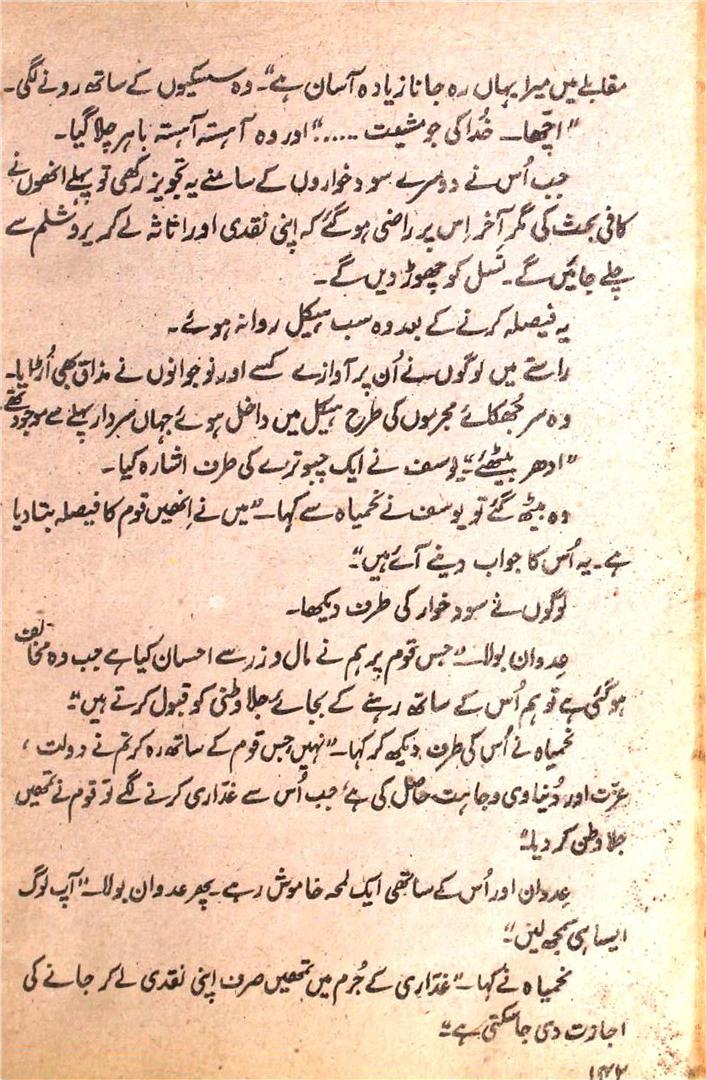 مقابلے میں میرا یہاں رہ جانا زیادہ آسان ہے“۔ وہ سسکیوں کے ساتھ رونے لگی۔
”اچھا۔ خُدا کی جو مشیت .....“ اور وہ آہستہ آہستہ باہر چلا گیا۔
جب اُس نے دوسرے سود خواروں کے سامنے یہ تجویز رکھی تو پہلے انھوں نے
کافی بحث کی مگر آخر اِس پر راضی ہو گئے کہ اپنی نقدی اور اثاثہ لے کر یروشلم سے
چلے جائیں گے۔ نسل کو چھوڑ دیں گے۔
یہ فیصلہ کرنے کے بعد وہ سب ہیکل روانہ ہوئے۔
راستے میں لوگوں نے اُن پر آوازے کسے اور نوجوانوں نے مذاق بھی اُڑایا۔
وہ سر جُھکائے مجرموں کی طرح ہیکل میں داخل ہوئے جہاں سردار پہلے سے موجود تھے۔
”ادھر بیٹھئے“۔ یوسف نے ایک چبوترے کی طرف اشارہ کیا۔
وہ بیٹھ گئے تو یوسف نے نحمیاہ سے کہا۔ ”میں نے اِنھیں قوم کا فیصلہ بتا دیا
ہے۔ یہ اُس کا جواب دینے آئے ہیں“۔
لوگوں نے سود خوار کی طرف دیکھا۔
عِدوان بولا۔ ”جس قوم پر ہم نے مال و زر سے احسان کیا ہے جب وہ مخالف
ہو گئی ہے تو ہم اُس کے ساتھ رہنے کے بجائے جلا وطنی کو قبول کرتے ہیں“۔
نحمیاہ نے اُس کی طرف دیکھ کر کہا۔ ”نہیں، جس قوم کے ساتھ رہ کر تم نے دولت،
عزت اور دُنیاوی وجاہت حاصل کی ہے، جب اُس سے غدّاری کرنے لگے تو قوم نے تمھیں
جلا وطن کر دیا“۔
عِدوان اور اُس کے ساتھی ایک لمحہ خاموش رہے۔ پھر عدوان بولا۔ ”آپ لوگ
ایسا ہی سمجھ لیں“۔
نحمیاہ نے کہا۔ ”غدّاری کے جُرم میں تمھیں صرف اپنی نقدی لے کر جانے کی
اجازت دی جا سکتی ہے“۔